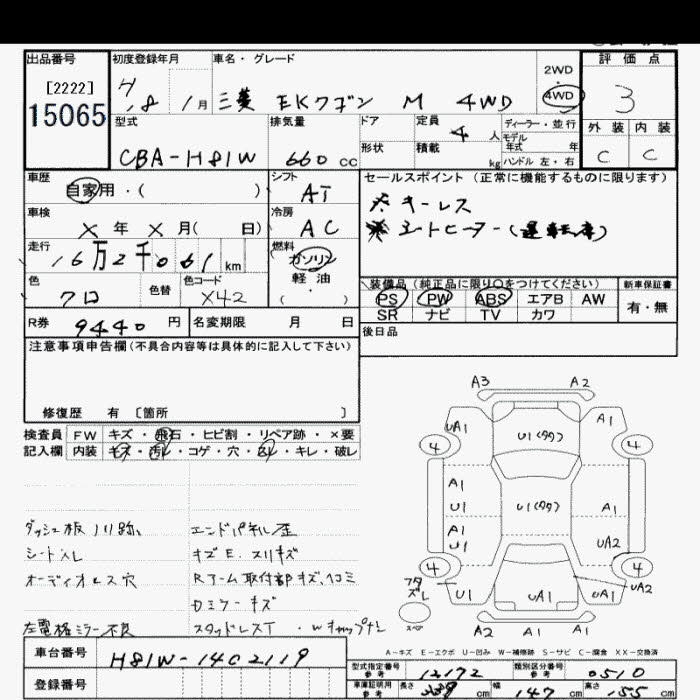 出品番号 初度登録年月 車名・グレード 2WD・4WD 評価点
[2222]
15065
18年 1月 三菱 EKワゴン M 4WD 3
型式 排気量 ドア 定員 4人 ディーラー・並行
モデル年式 年
外装 内装
CBA-H81W 660cc 形状 積載 kg ハンドル 左・右 C C
車歴 シフト セールスポイント(正常に機能するものに限ります)
自家用・( ) AT
キーレス
車検 冷房
X年X月( 日) AC シートヒーター(運転席)
走行 燃料
16万2千061km ガソリン
軽油
・( )
色 色替 色コード
クロ X42
装備品(純正品に限り○をつけてください) 新車保証書
PS PW ABS エアB AW 有・無
SR ナビ TV カワ
R券 9440円 名変期限 月 日
後日品
注意事項申告欄(不具合内容等は具体的に記入して下さい)
修復歴 有 [箇所 ]
検査員 FW キズ・飛石・ヒビ割・リペア跡・×要
記入欄 内装 キズ・汚れ・コゲ・穴・スレ・キレ・破レ
A3 A2
UA1 A1
4 U1(タタ) 4
A1 A1
U1 U1(タタ)
A1
U1 UA2
4 4
フタズレ U1 UA1 UA1 UA2
スペア
A2 A1 A1
ダッシュ板ノリ跡、 エンドパネル歪
シートスレ キズE.スリキズ
オーディオレス穴 Rアーム取付部キズ、ヘコミ
左電格ミラー不良 スタッドレスT・Wキャップナシ
A-キズ E-エクボ U-凹み W-補修跡 S-サビ C-腐食 XX-交換済
車台番号 H81W-1402119
登録番号
型式指定番号 参考 12172 類別区分番号 参考 0510
車庫証明用 参考 長さ 339cm 幅 147cm 高さ 155cm